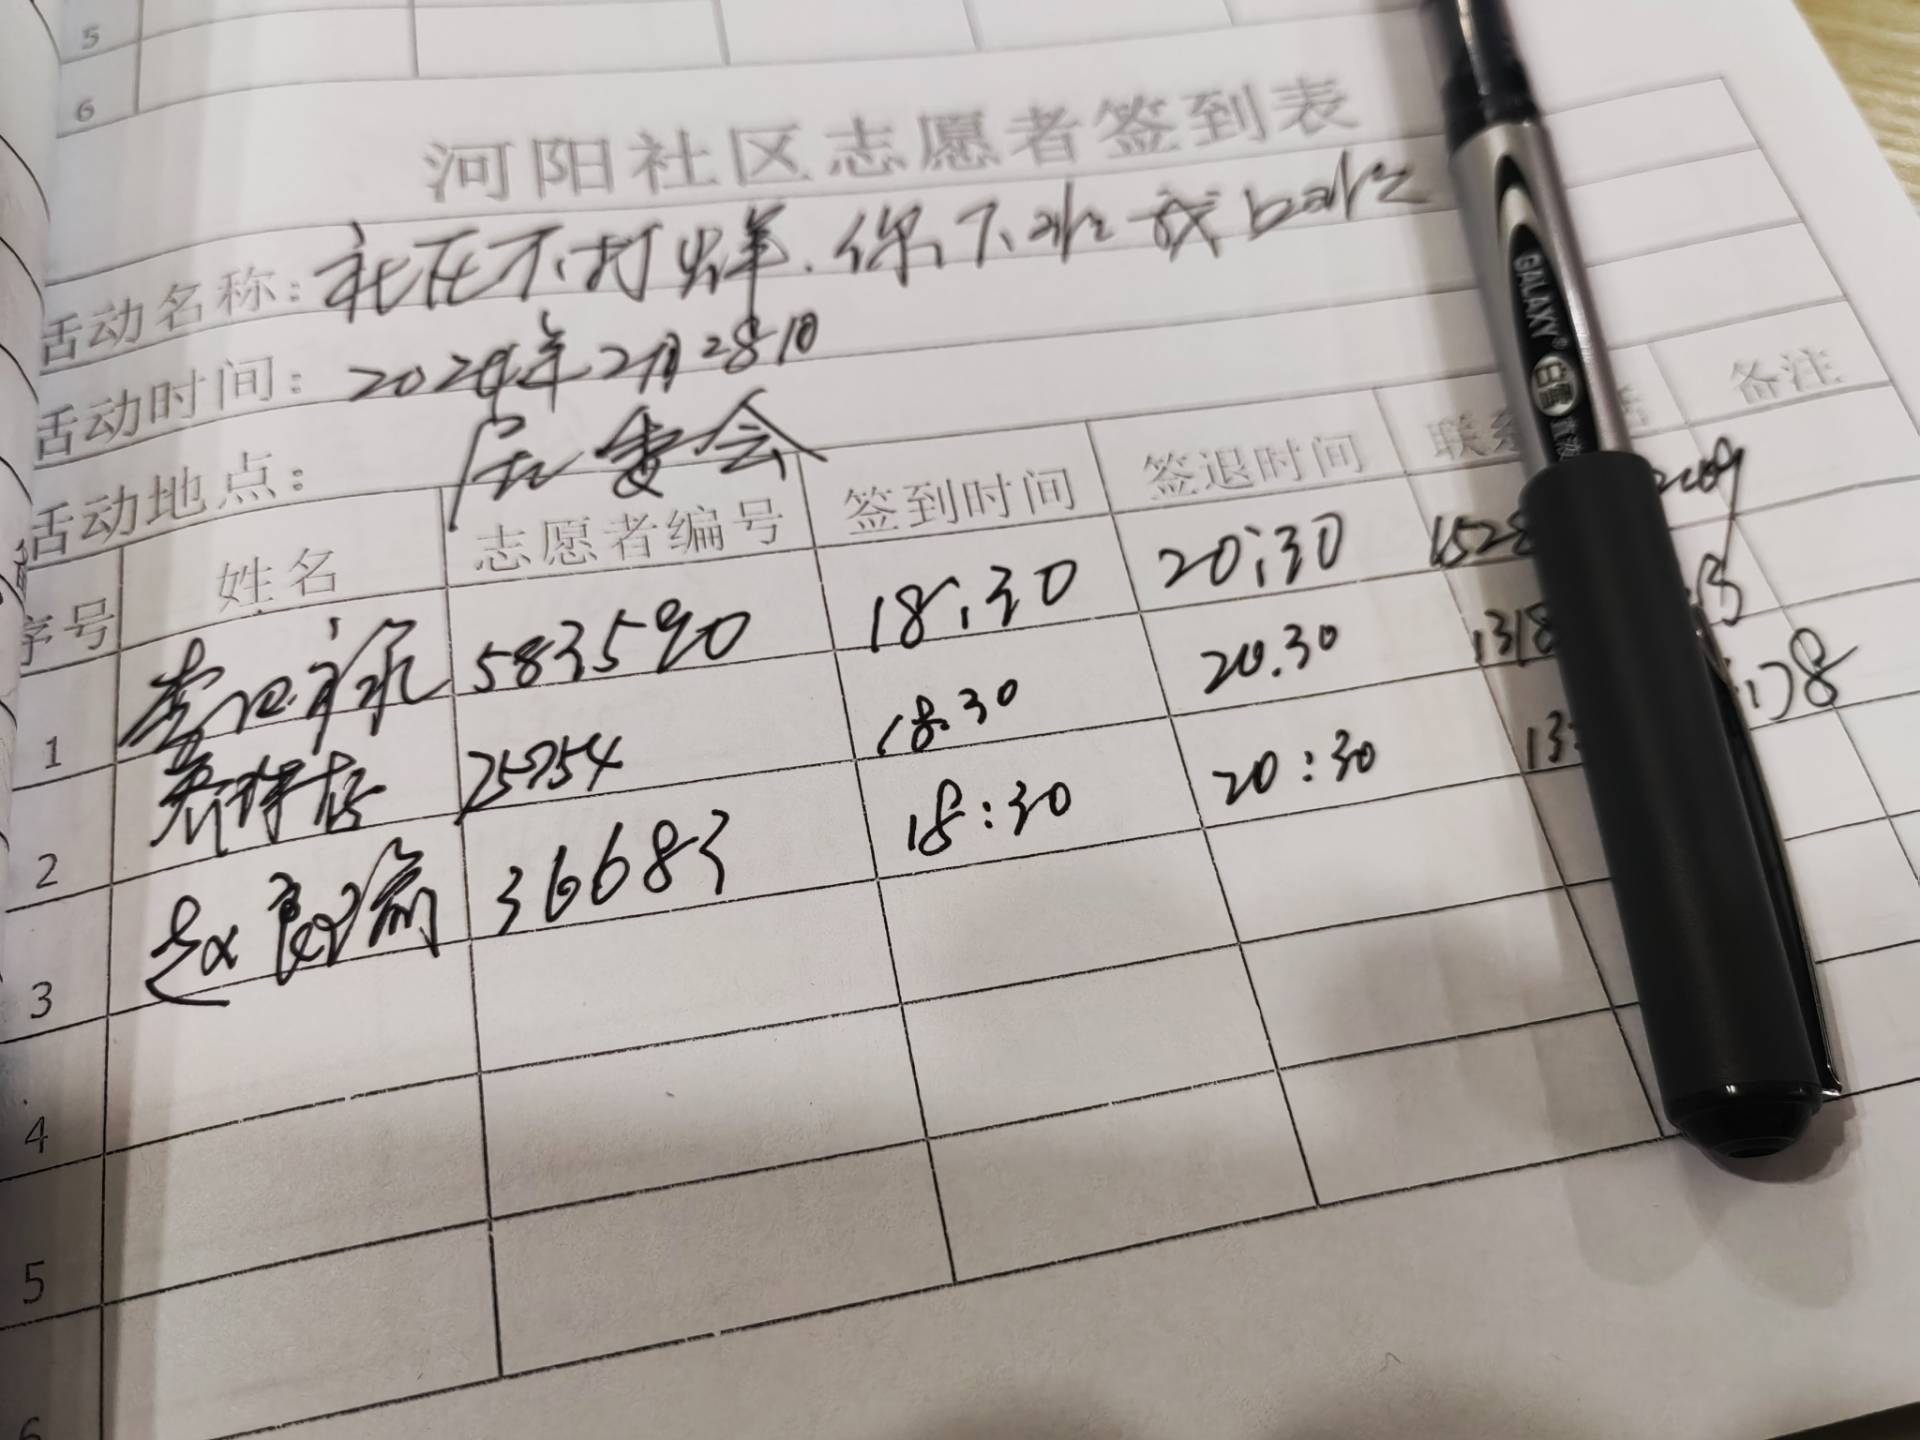 5
6
河阳社区志愿者签到表
活动名称: 社区不打烊.你下班我上班
活动时间: 2024年2月28日
活动地点: 居委会
序号 姓名 志愿者编号 签到时间 签退时间 联系 备注
1 583590 18:30 20:30 1528
2 25754 18.30 20.30 1318
3 赵良瑜 36683 18:30 20:30 13
4
5
6
GALAXY 白雪